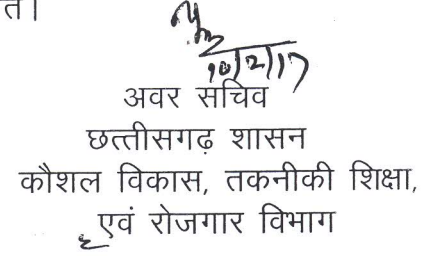 त।
10/2/17
अवर सचिव
छत्तीसगढ़ शासन
कौशल विकास, तकनीकी शिक्षा,
एवं रोजगार विभाग